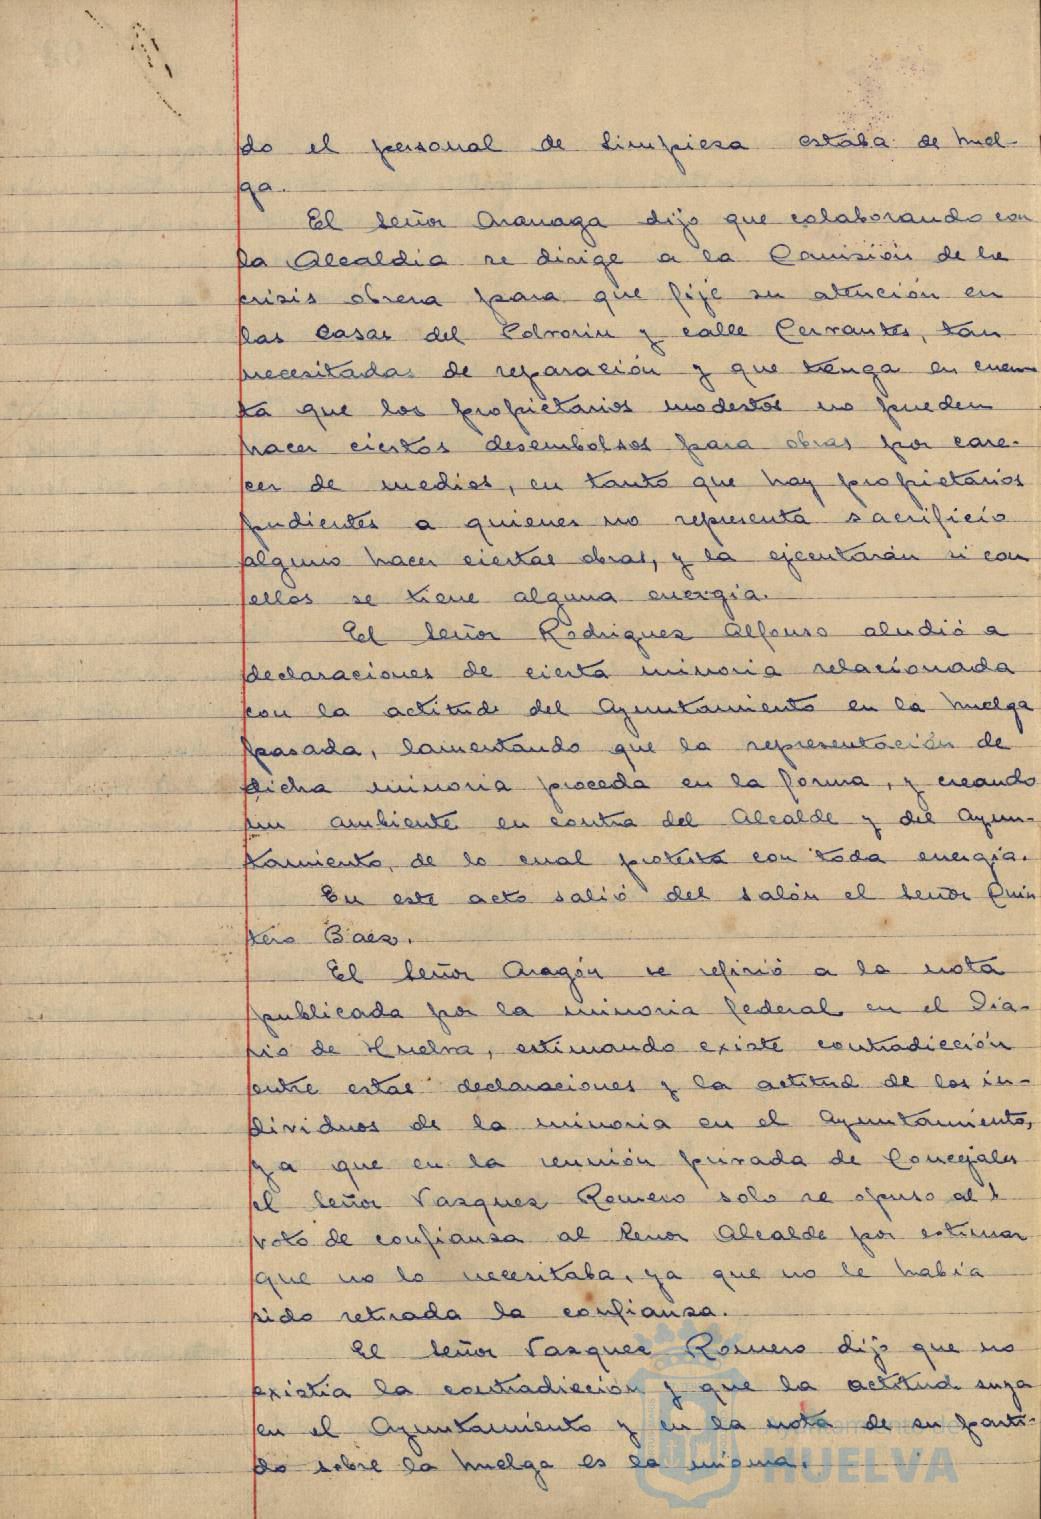 do el personal de limpieza estaba de huel-
ga.
El señor Aranaga dijo que colaborando con
la Alcaldia se dirige a la Comisión de la
crisis obrera para que fije su atención en
las casas del y calle Cervantes, tan
necesitadas de reparación y que tenga en cuen-
ta que los propietarios modestos no pueden
hacer ciertos desembolsos para obras por care-
cer de medios, en tanto que hay propietarios
pudientes a quienes no representa sacrificio
alguno hacer ciertas obras, y la ejecutarán si con
ellos se tiene alguna energia.
El señor Rodriguez Alfonso aludió a
declaraciones de cierta minoria relacionada
con la actitud del Ayuntamiento en la huelga
pasada, lamentando que la representación de
dicha minoria proceda en la forma, y creando
un ambiente en contra del Alcalde y del Ayun-
tamiento, de lo cual protesta con toda energia.
En este acto salió del salón el señor Quin
tero Baez.
El señor Aragón se refirió a la nota
publicada por la minoria federal en el Dia-
rio de Huelva, estimando existe contradicción
entre estas declaraciones y la actitud de los in-
dividuos de la minoria en el Ayuntamiento,
ya que en la reunión privada de Concejales
el señor Vazquez Romero solo se opuso al
voto de confianza al señor Alcalde por estimar
que no lo necesitaba, ya que no le habia
sido retirada la confianza.
El señor Vazquez Romero dijo que no
existia la contradicción y que la actitud suya
en el Ayuntamiento y en la nota de su parti-
do sobre la huelga es la misma.
HUELVA